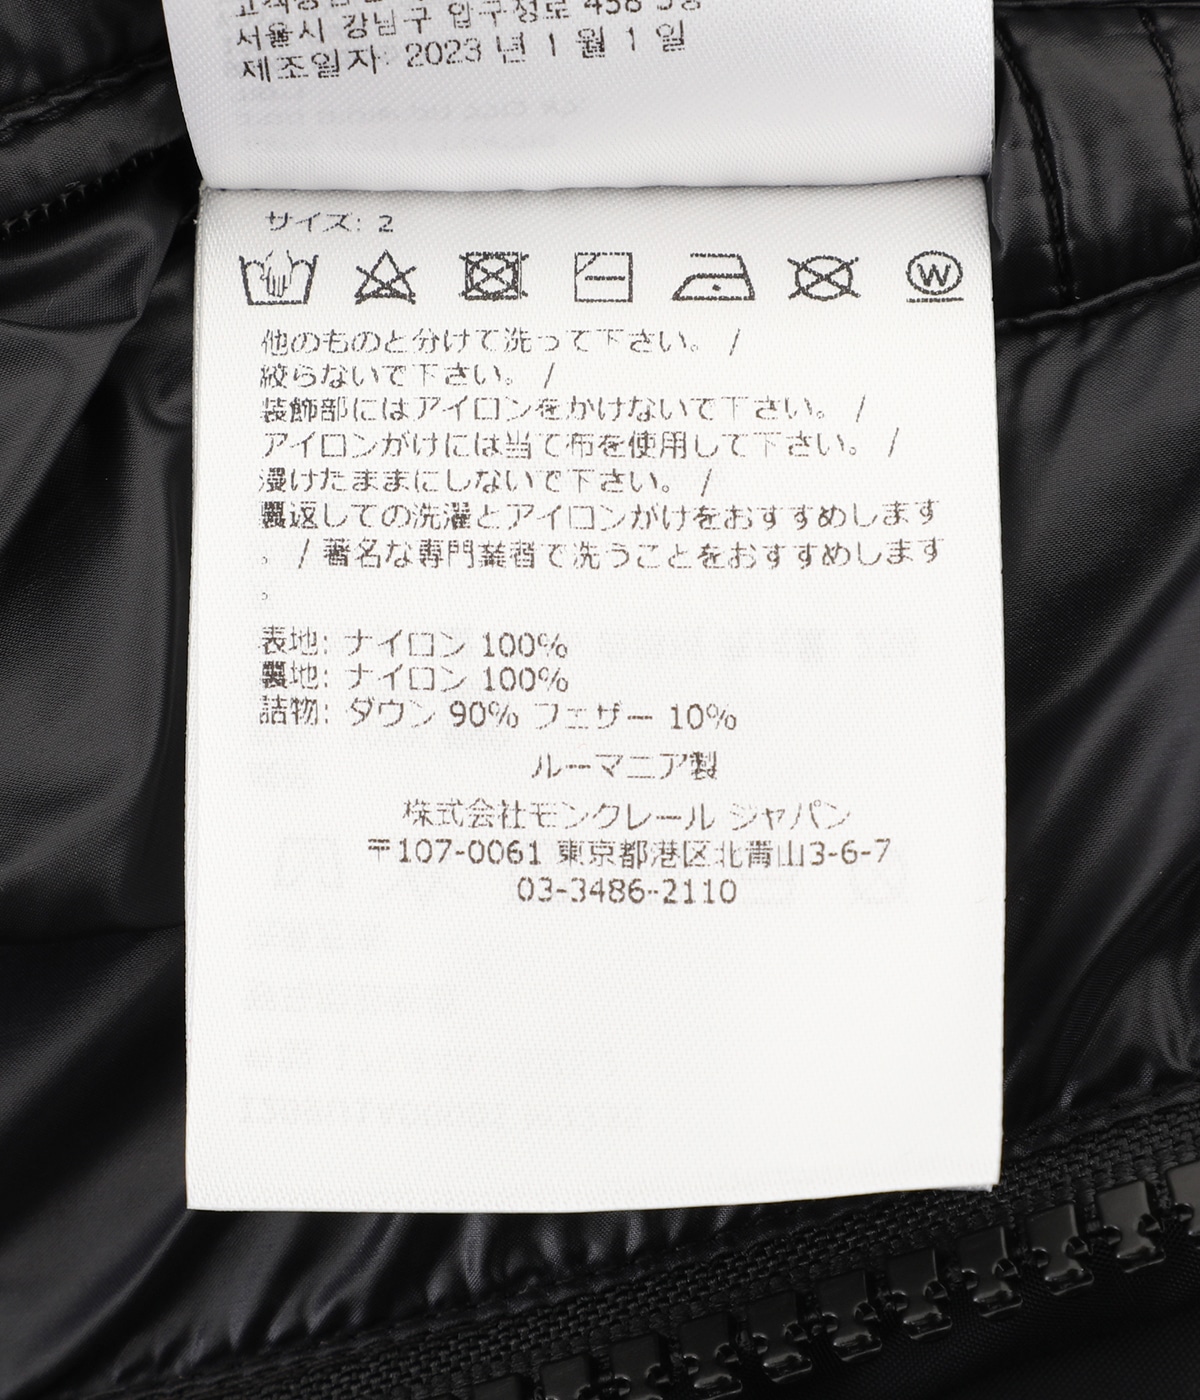 서울시 강남구 압구정로 458 5층
제조일자: 2023 년 1 월 1 일
サイズ: 2
W
他のものと分けて洗って下さい。 /
絞らないで下さい。 /
装飾部にはアイロンをかけないで下さい。 /
アイロンがけには当て布を使用して下さい。 /
浸けたままにしないで下さい。 /
裏返しての洗濯とアイロンがけをおすすめします
。 / 著名な専門業者で洗うことをおすすめします
。
表地: ナイロン 100%
裏地: ナイロン 100%
詰物: ダウン 90% フェザー 10%
ルーマニア製
株式会社モンクレール ジャパン
〒107-0061 東京都港区北青山3-6-7
03-3486-2110